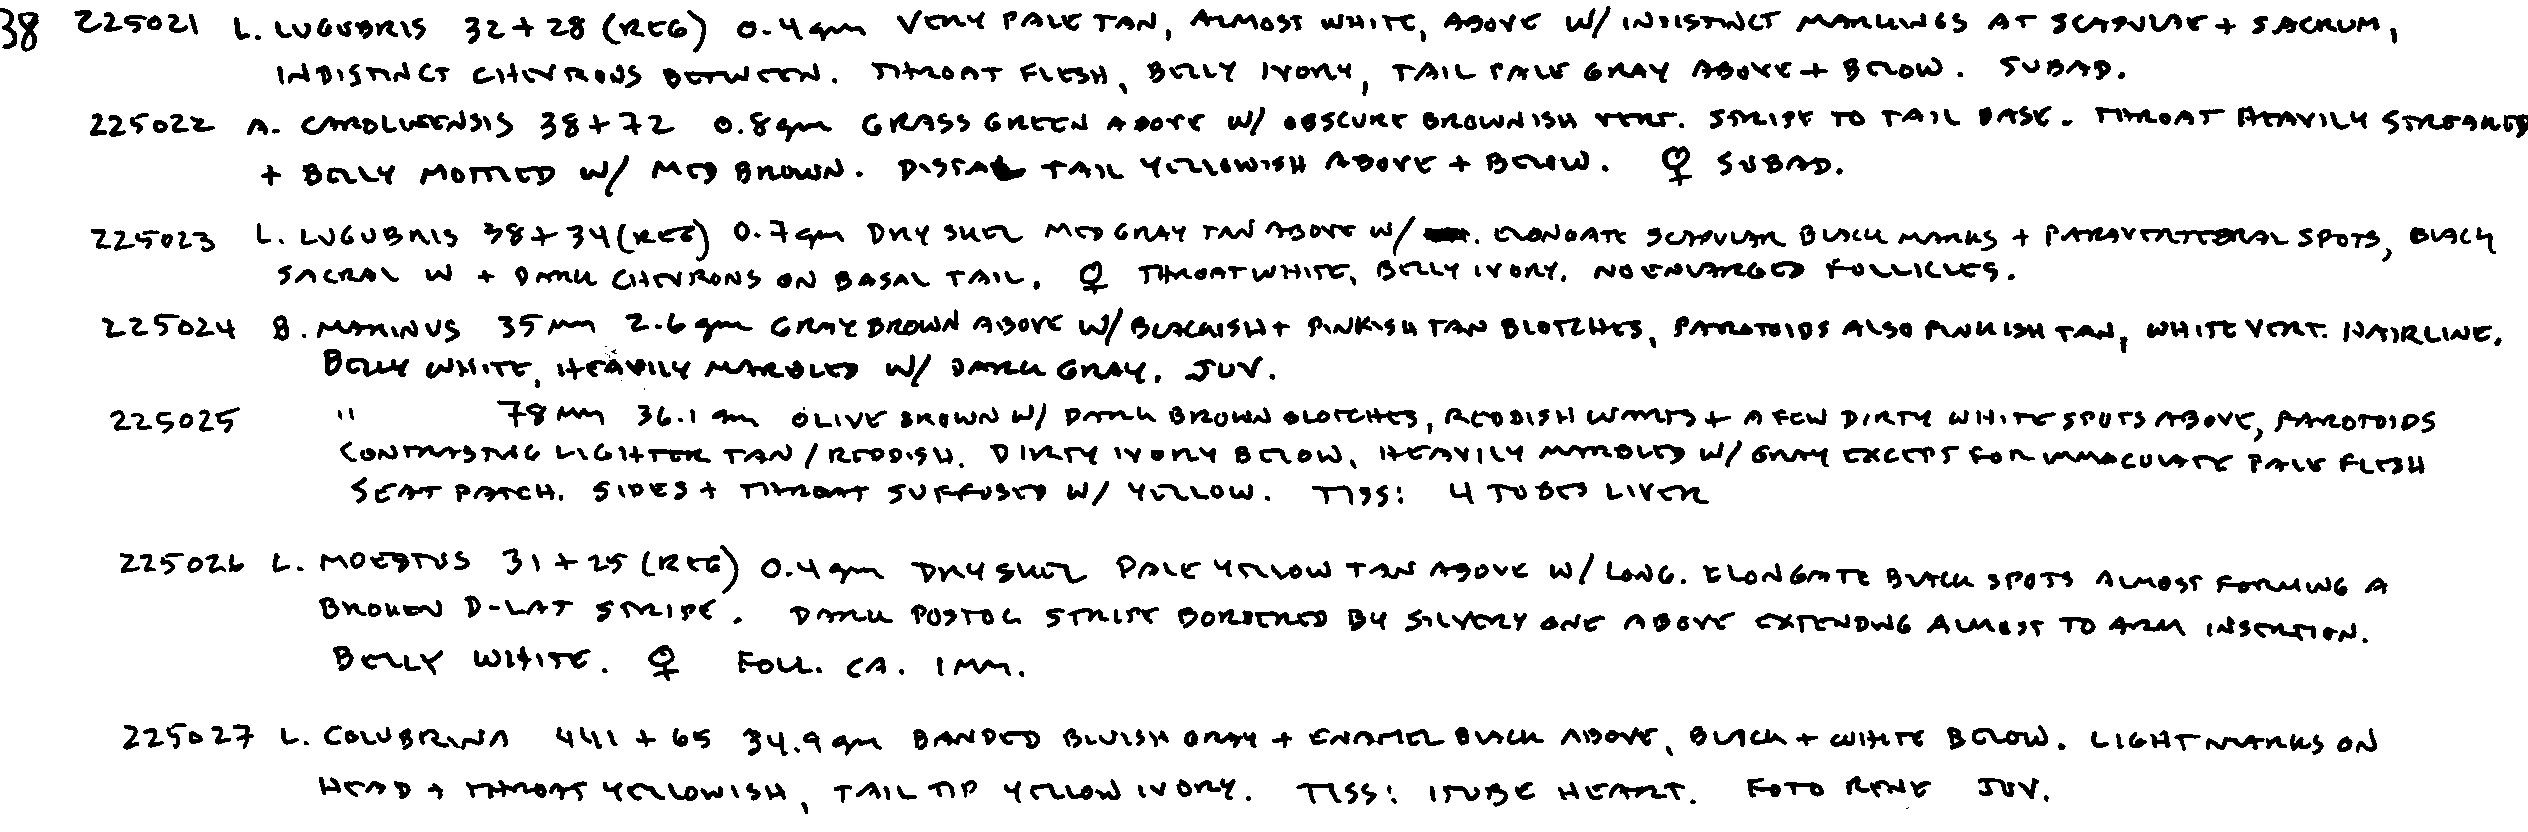 38 225021 L. LUGUBRIS 32 + 28 (REG) 0.4 gm VERY PALE TAN, ALMOST WHITE, ABOVE W/ INDISTINCT MARKINGS AT SCAPULAE + SACRUM,
INDISTINCT CHEVRONS BETWEEN. THROAT FLESH, BELLY IVORY, TAIL PALE GRAY ABOVE + BELOW. SUBAD.
225022 A. CAROLINENSIS 38 + 72 0.8 gm GRASS GREEN ABOVE W/ OBSCURE BROWNISH VERT. STRIPE TO TAIL BASE. THROAT HEAVILY STREAKED
+ BELLY MOTTLED W/ MED BROWN. DISTAL TAIL YELLOWISH ABOVE + BELOW. ♀ SUBAD.
225023 L. LUGUBRIS 38 + 34 (REG) 0.7 gm DRY SHED MED GRAY TAN ABOVE W/ ELONGATE SCAPULAR BLACK MARKS + PARAVERTEBRAL SPOTS, BLACK
SACRAL W + DARK CHEVRONS ON BASAL TAIL. ♀ THROAT WHITE, BELLY IVORY. NO ENLARGED FOLLICLES.
225024 B. MARINUS 35 mm 2.6 gm GRAY BROWN ABOVE W/ BLACKISH + PINKISH TAN BLOTCHES, PAROTOIDS ALSO PINKISH TAN, WHITE VERT. HAIRLINE.
BELLY WHITE, HEAVILY MARBLED W/ DARK GRAY. JUV.
225025 " 78 mm 36.1 gm OLIVE BROWN W/ DARK BROWN BLOTCHES, REDDISH WARTS + A FEW DIRTY WHITE SPOTS ABOVE, PAROTOIDS
CONTRASTING LIGHTER TAN / REDDISH. DIRTY IVORY BELOW, HEAVILY MARBLED W/ GRAY EXCEPT FOR IMMACULATE PALE FLESH
SEAT PATCH. SIDES + THROAT SUFFUSED W/ YELLOW. TISS: 4 TUBES LIVER
225026 L. MOESTUS 31 + 25 (REG) 0.4 gm DRY PALE YELLOW TAN ABOVE W/ LONG. ELONGATE BLACK SPOTS ALMOST FORMING A
BROKEN D-LAT STRIPE. DARK POSTOC STRIPE BORDERED BY SILVERY ONE ABOVE EXTENDING ALMOST TO ARM INSERTION.
BELLY WHITE. ♀ FOLL. CA. 1 MM.
225027 L. COLUBRINA 441 + 65 34.9 gm BANDED BLUISH GRAY + ENAMEL BLACK ABOVE, BLACK + WHITE BELOW. LIGHT MARKS ON
HEAD + THROAT YELLOWISH, TAIL TIP YELLOW IVORY. TISS: 1 TUBE HEART. FOTO RENE JUV.